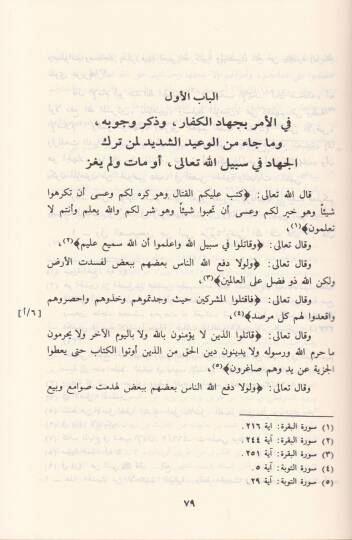 الباب الأول
في الأمر بجهاد الكفار، وذكر وجوبه،
وما جاء من الوعيد الشديد لمن ترك
الجهاد في سبيل الله تعالى، أو مات ولم يغز
قال الله تعالى: ﴿كتب عليكم القتال وهو كره لكم وعسى أن تكرهوا
شيئاً وهو خير لكم وعسى أن تحبوا شيئاً وهو شر لكم والله يعلم وأنتم لا
تعلمون﴾(١).
وقال تعالى: ﴿وقاتلوا في سبيل الله واعلموا أن الله سميع عليم﴾(٢).
وقال تعالى: ﴿ولولا دفع الله الناس بعضهم ببعض لفسدت الأرض
ولكن الله ذو فضل على العالمين﴾(٣).
وقال تعالى: ﴿فاقتلوا المشركين حيث وجدتموهم وخذوهم واحصروهم
واقعدوا لهم كل مرصد﴾(٤).
[٦/أ]
وقال تعالى: ﴿قاتلوا الذين لا يؤمنون بالله ولا باليوم الآخر ولا يحرمون
ما حرم الله ورسوله ولا يدينون دين الحق من الذين أوتوا الكتاب حتى يعطوا
الجزية عن يد وهم صاغرون﴾(٥).
وقال تعالى: ﴿ولولا دفع الله الناس بعضهم ببعض لهدمت صوامع وبيع
(١) سورة البقرة: آية ٢١٦.
(٢) سورة البقرة: آية ٢٤٤.
(٣) سورة البقرة: آية ٢٥١.
(٤) سورة التوبة: آية ٥.
(٥) سورة التوبة: آية ٢٩.
٧٩